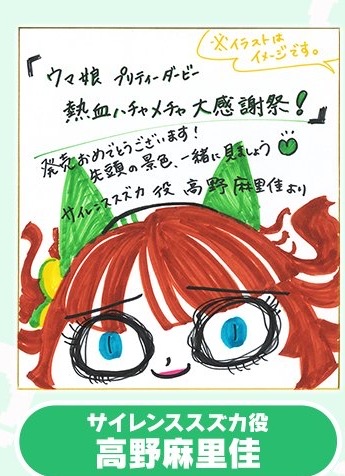 ※イラストは
イメージです。
「ウマ娘 プリティーダービー
熱血ハチャメチャ大感謝祭!」
発売おめでとうございます!
先頭の景色、一緒に見ましょう
サイレンススズカ 役 高野麻里佳より
サイレンススズカ役
高野麻里佳